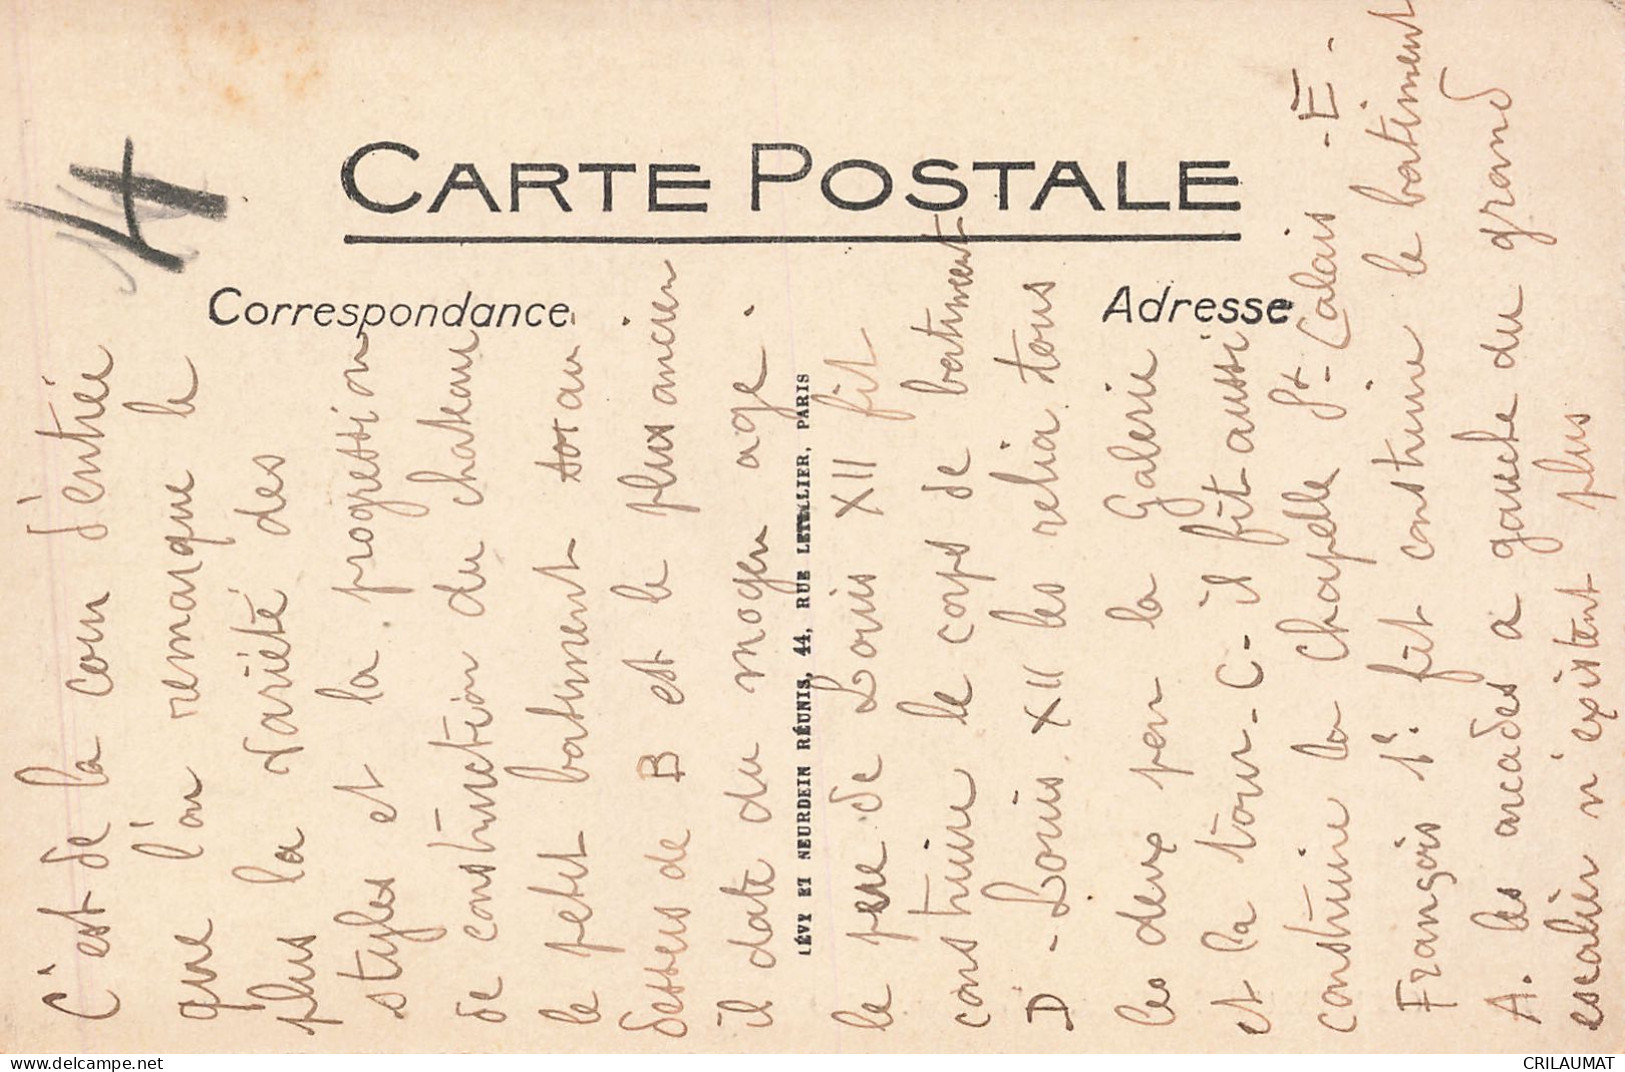 14
CARTE POSTALE
Correspondance
Adresse
LÉVY ET NEURDEIN RÉUNIS, 44, RUE LETELLIER, PARIS
C'est de la cour d'entrée
que l'on remarque le
plus la variété des
styles et la progression
de construction du chateau
le petit batiment au
dessus de B est le plus ancien.
il date du moyen age.
le pere de Louis XII fit
construire le corps de batiment
D - Louis XII les relia tous
les deux par la Galerie
et la tour - C - il fit aussi
construire la chapelle St-Calais - E -
François 1er fit construire le batiment
A. les arcades a gauche du grand
escalier n'existent plus
delcampe.net
CRILAUMAT